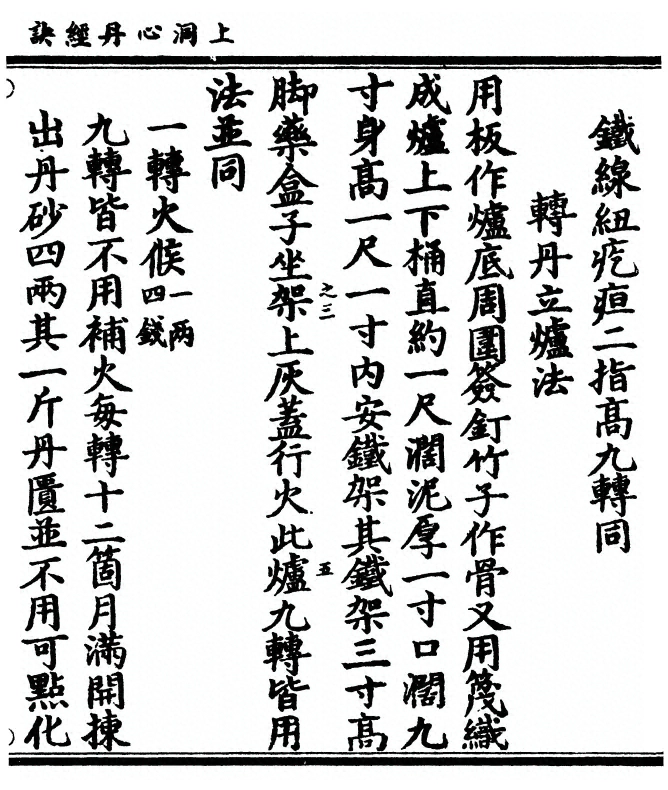 上洞心丹經訣
鐵線紐疙疸二指高九轉同
轉丹立爐法
用板作爐底周圍簽釘竹子作骨又用篾織
成爐上下桶直約一尺濶泥厚一寸口濶九
寸身高一尺一寸内安鐵架其鐵架三寸高
脚藥盒子坐架上灰蓋行火此爐九轉皆用
之三
五
法並同
一轉火候一两四錢
九轉皆不用補火每轉十二箇月滿開揀
出丹砂四兩其一斤丹匱並不用可點化